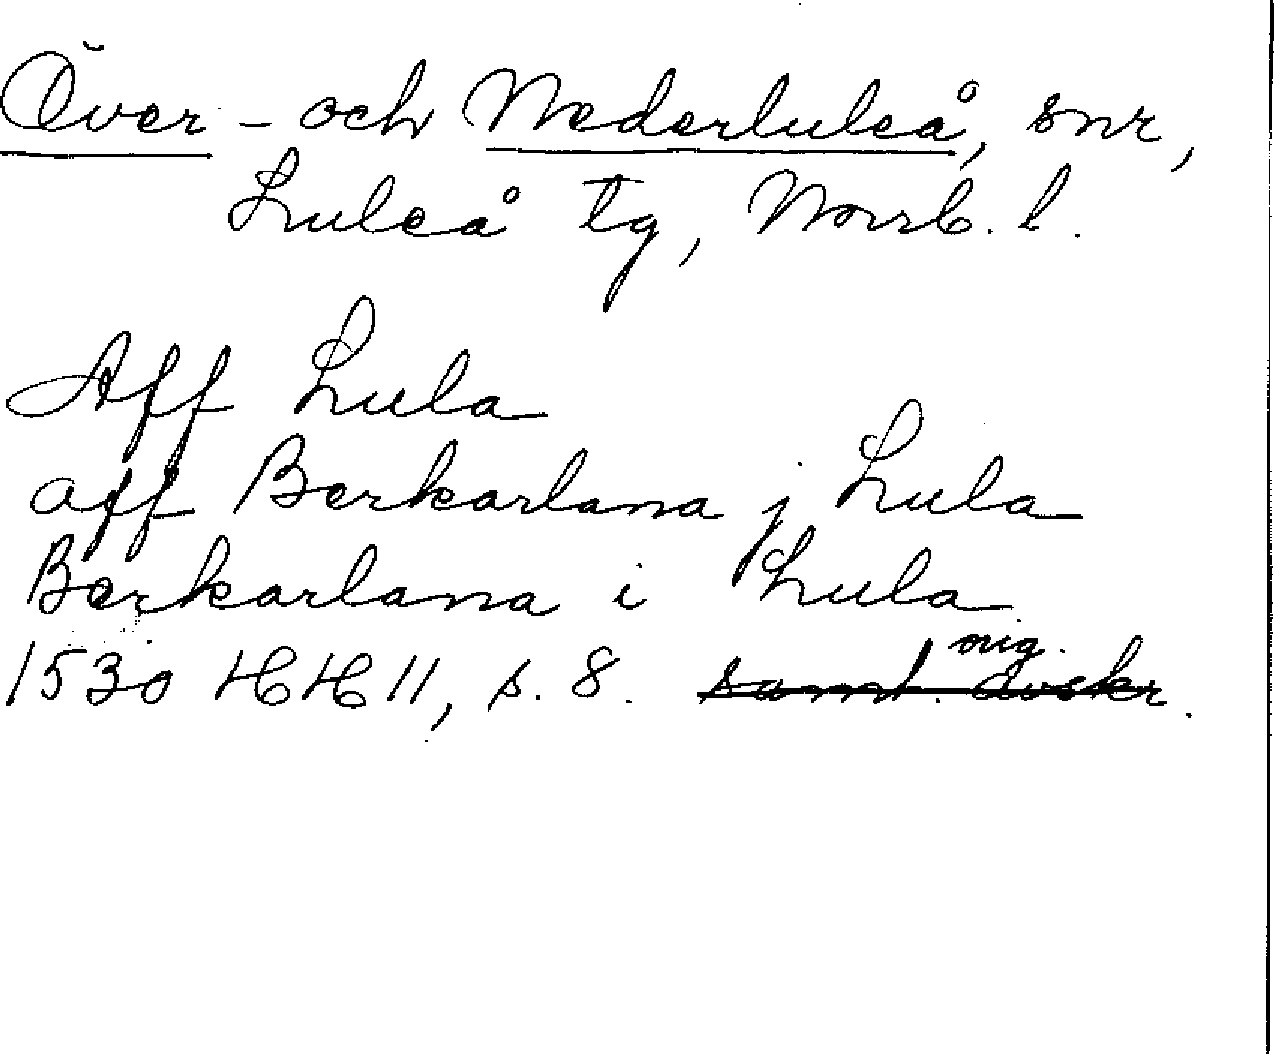 Över- och Nederluleå, snr,
Luleå tg, Norrb. l.
Aff Lula
aff Berkarlana j Lula
Berkarlana i Lula
1530 HH 11, s. 8. orig.
samt. avskr.